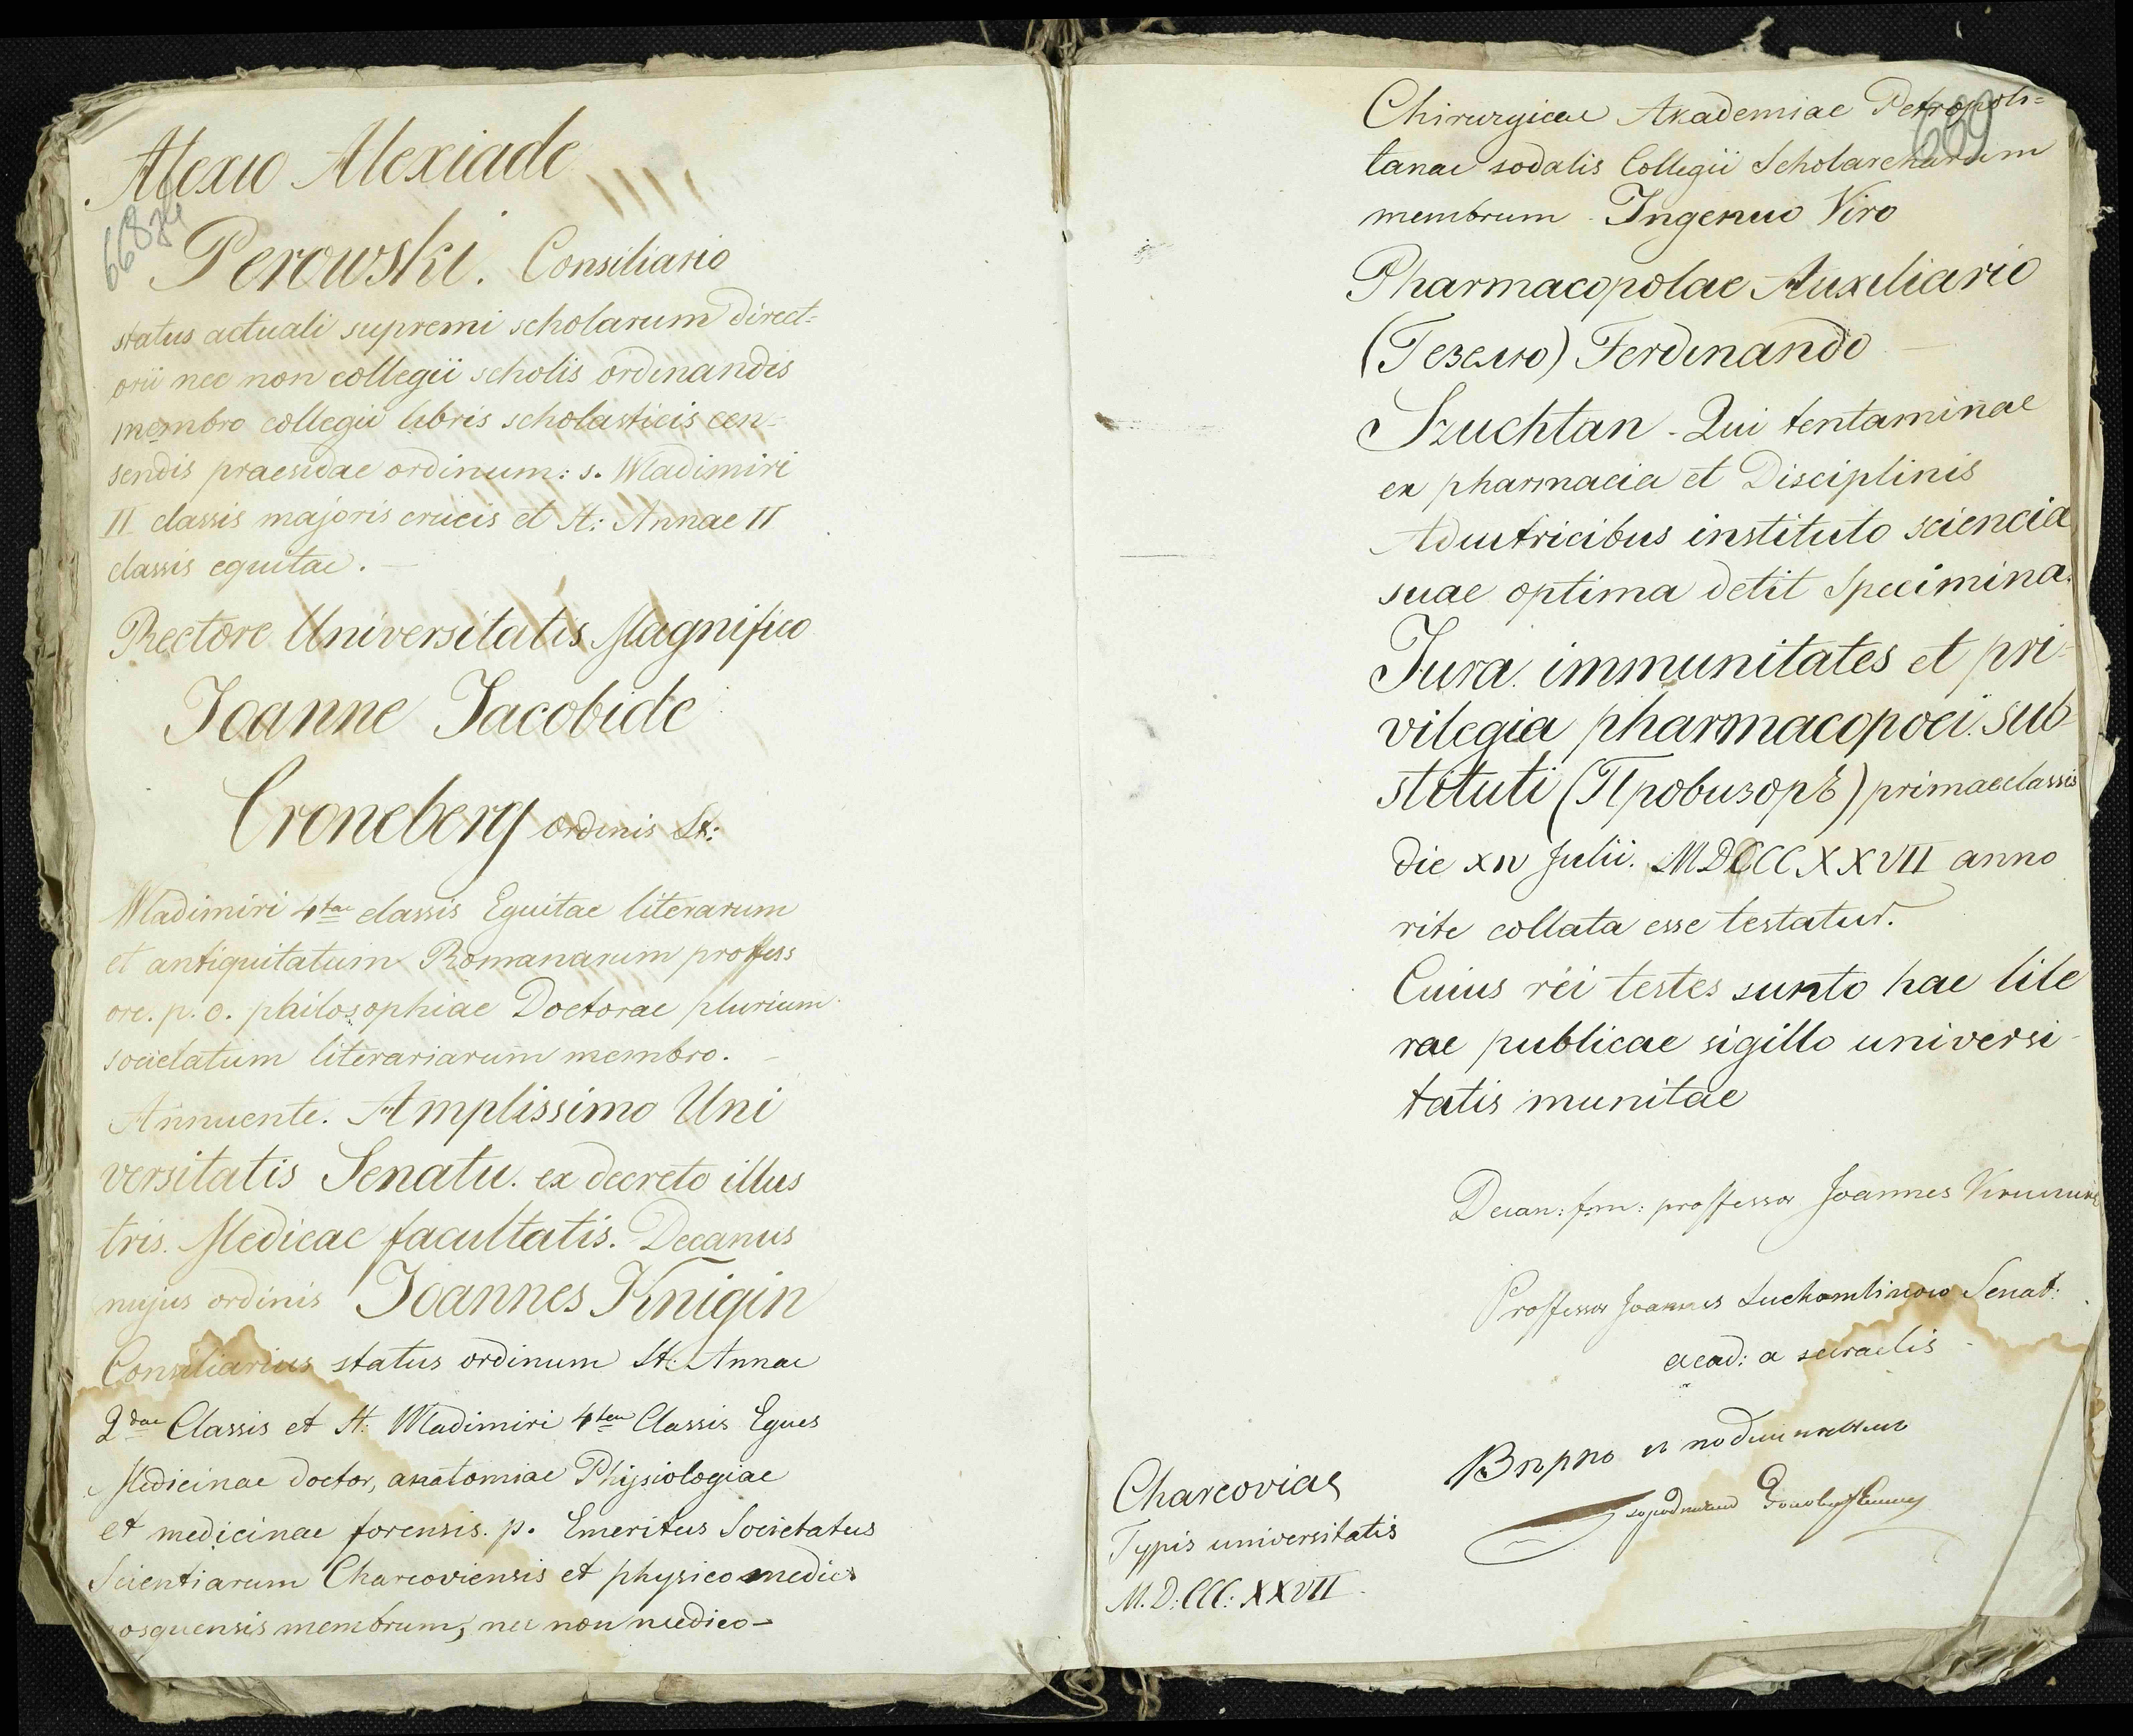 Alexio Alexiade
668
Perowski. Consiliario
status actuali supremi scholarum direct=
orii nec non collegii scholis ordinandis
membro collegii libris scholasticis cen=
sendis praesidae ordinum: s. Wladimiri
II classis majoris crucis et St: Annae II
classis equitae. —
Rectore Universitatis Magnifico
Joanne Jacobide
Croneberg ordinis St:
Wladimiri 4tae classis Equitae literarum
et antiquitatum Romanarum profess
ore. p. o. philosophiae Doctorae plurium
societatum literariarum membro. —
Annuente. Amplissimo Uni
versitatis Senatu. ex decreto illus
tris. Medicae facultatis. Decanus
nujus ordinis Joannes Knigin
Consiliarius status ordinum St: Annae
2dae Classis et St: Wladimiri 4tae Classis Eques
Medicinae doctor, anatomiae Physiologiae
et medicinae forensis. p. Emeritus Societatus
Scientiarum Charcoviensis et physico medico
osquensis membrum, nec non medico-
669
Chirurgicae Akademiae Petropoli=
tanae sodalis Collegii Scholarcharum
membrum - Ingenuo Viro
Pharmacopolae Auxiliario
(Гезелю) Ferdinando —
Szuchtan - Qui tentaminae
ex pharmacia et Disciplinis
Adiutricibus instituto sciencia
suae optima detit Specimina.
Jura. immunitates et pri-
vilegia pharmacopoei. sub-
stituti (Провизоръ) primae classis
die XIV Julii. MDCCCXXVII anno
rite collata esse testatur.
Cuius rei testes sunto hae lite
rae publicae sigillo universi-
tatis munitae
Decan: f.m: proffessor Joannes
Proffessor Joannes Suchomlinow Senat:
acad: a secraetis -
Charcoviae
Вѣрно съ подлинникомъ
Typis universitatis
M.D:CCC: XXVII.